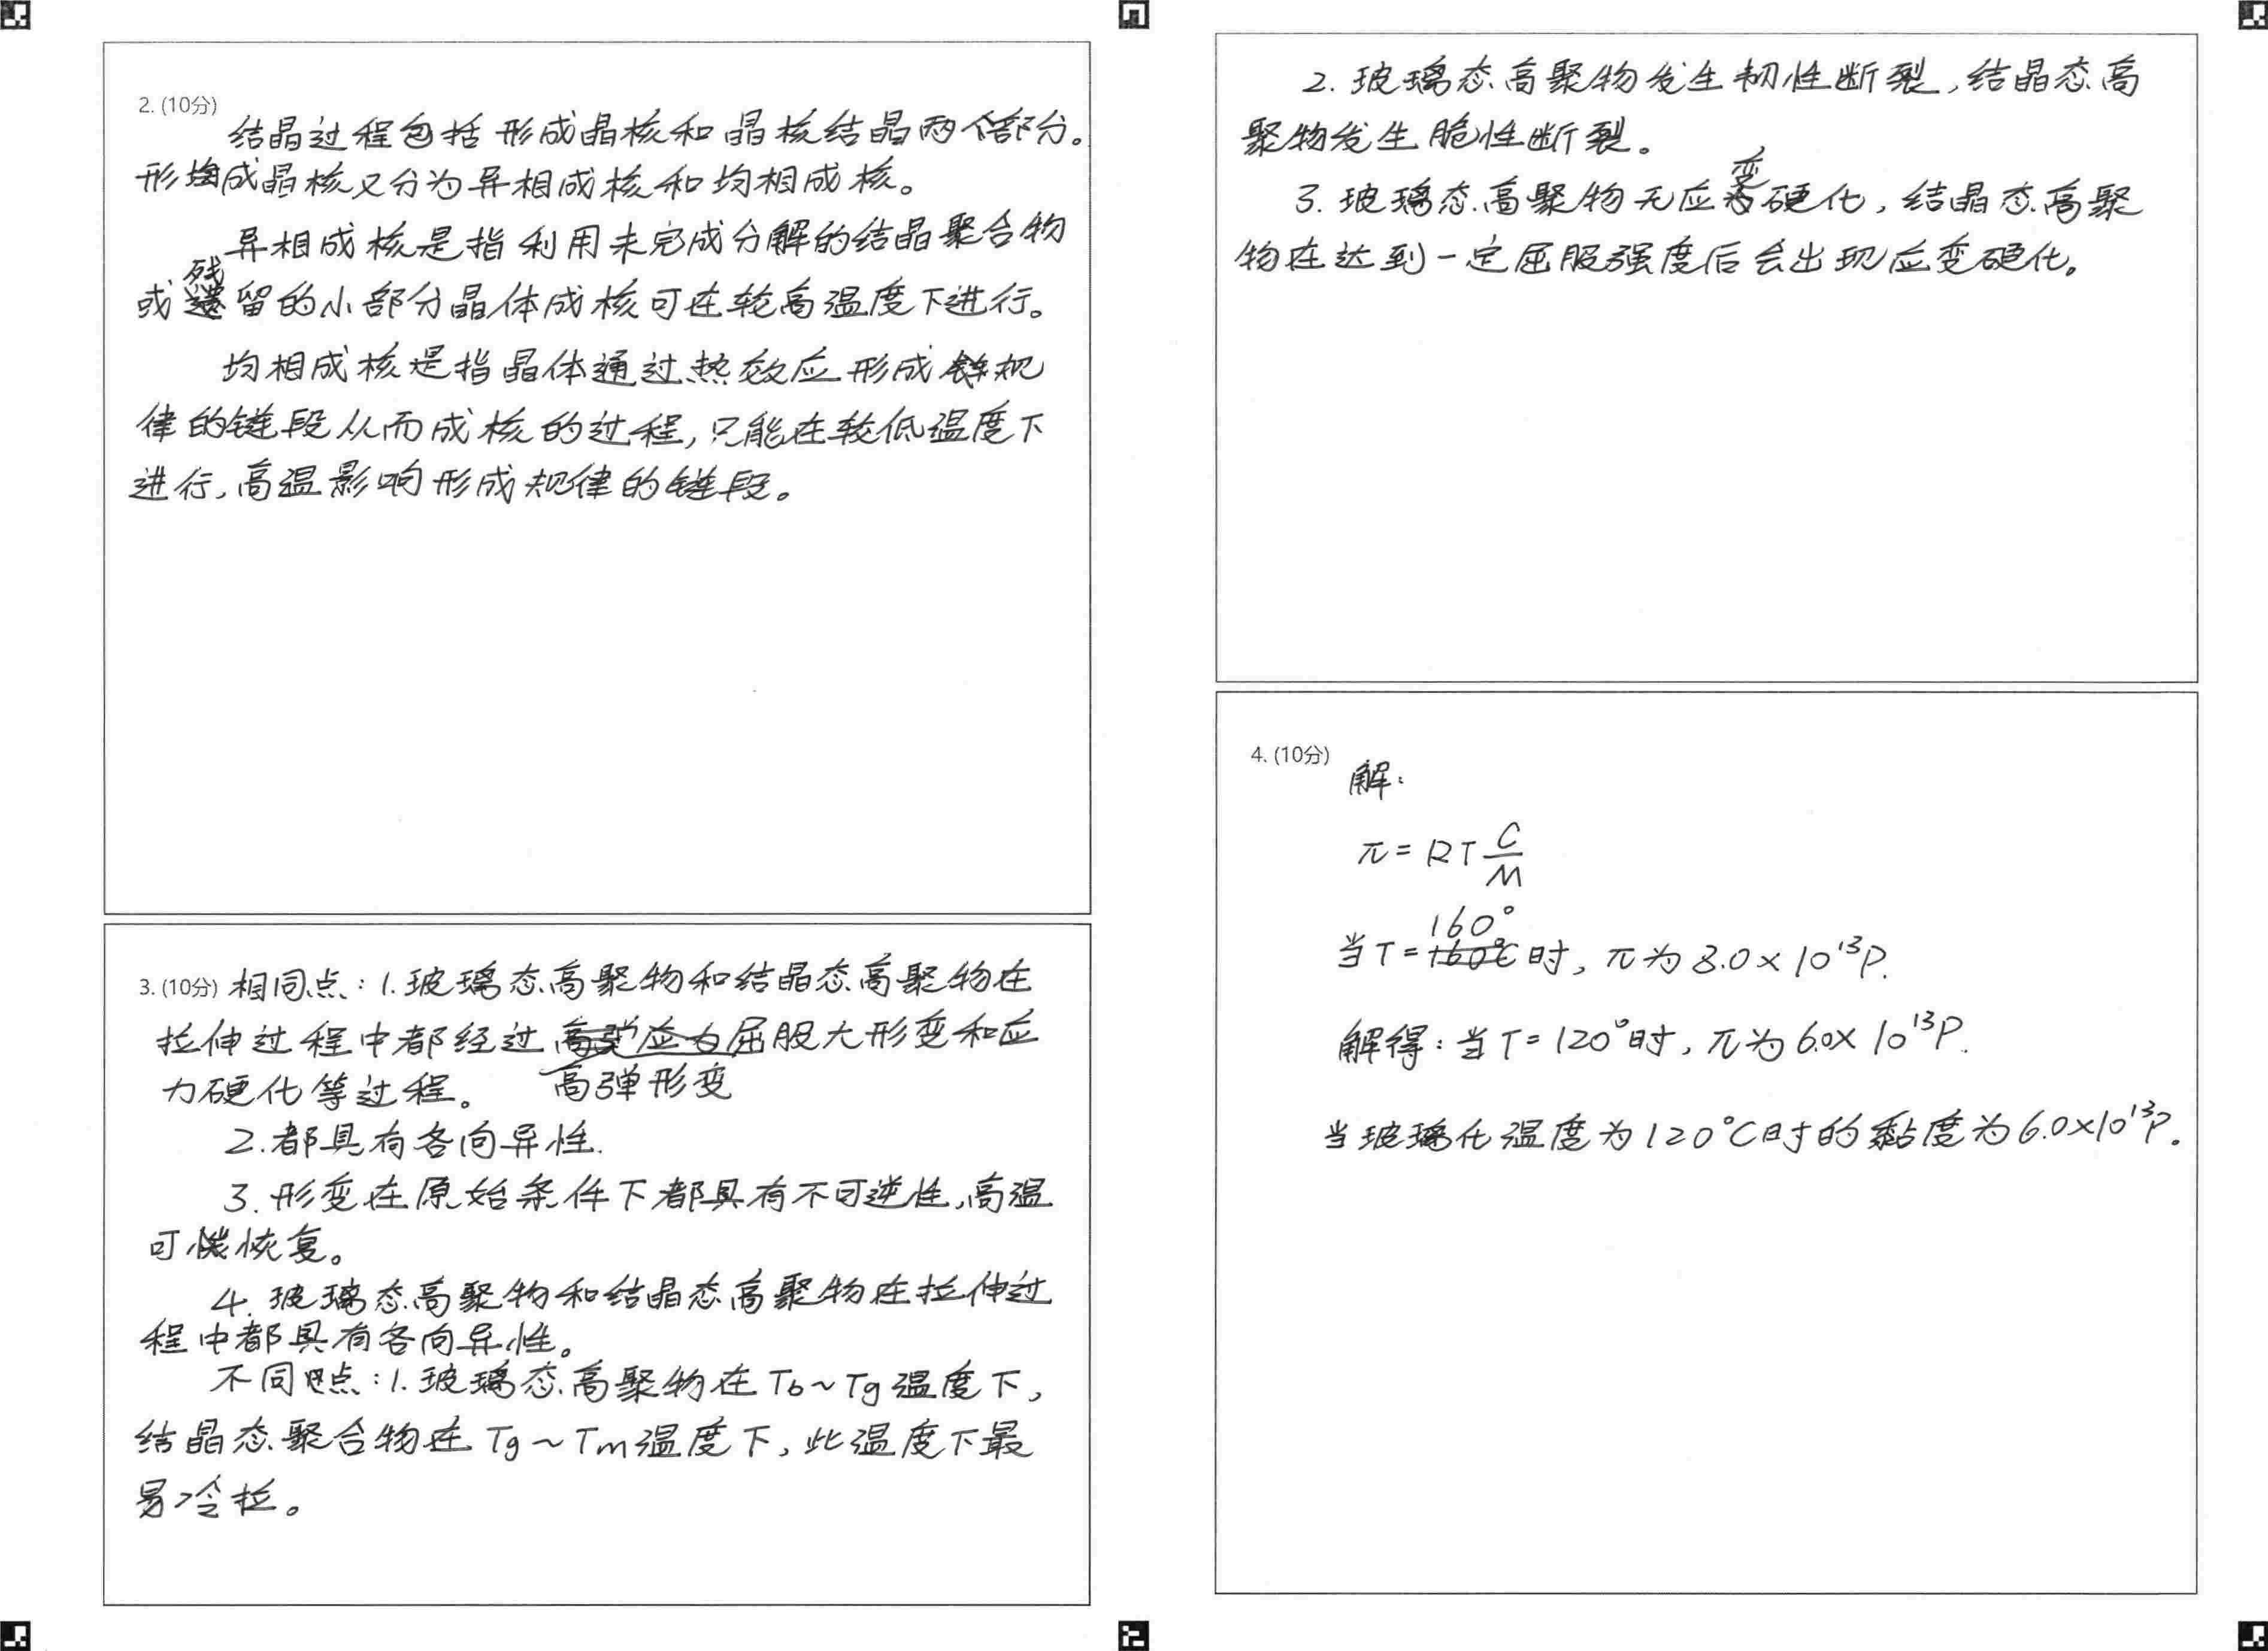 2. (10分)
结晶过程包括形成晶核和晶核结晶两个部分。
形成晶核又分为异相成核和均相成核。
异相成核是指利用未完成分解的结晶聚合物
或残留的小部分晶体成核可在较高温度下进行。
均相成核是指晶体通过热效应形成规
律的链段从而成核的过程,只能在较低温度下
进行,高温影响形成规律的链段。
3. (10分) 相同点:1.玻璃态高聚物和结晶态高聚物在
拉伸过程中都经过高弹形变屈服大形变和应
力硬化等过程。
2.都具有各向异性.
3.形变在原始条件下都具有不可逆性,高温
可恢复。
4.玻璃态高聚物和结晶态高聚物在拉伸过
程中都具有各向异性。
不同点:1.玻璃态高聚物在Tb~Tg温度下,
结晶态聚合物在Tg~Tm温度下,此温度下最
易冷拉。
2.玻璃态高聚物发生韧性断裂,结晶态高
聚物发生脆性断裂。
3.玻璃态高聚物无应变硬化,结晶态高聚
物在达到一定屈服强度后会出现应变硬化。
4. (10分)
解:
π=RT C/M
当T=160°时,π为8.0×10¹³P.
解得:当T=120°时,π为6.0×10¹³P.
当玻璃化温度为120°C时的黏度为6.0×10¹³P。